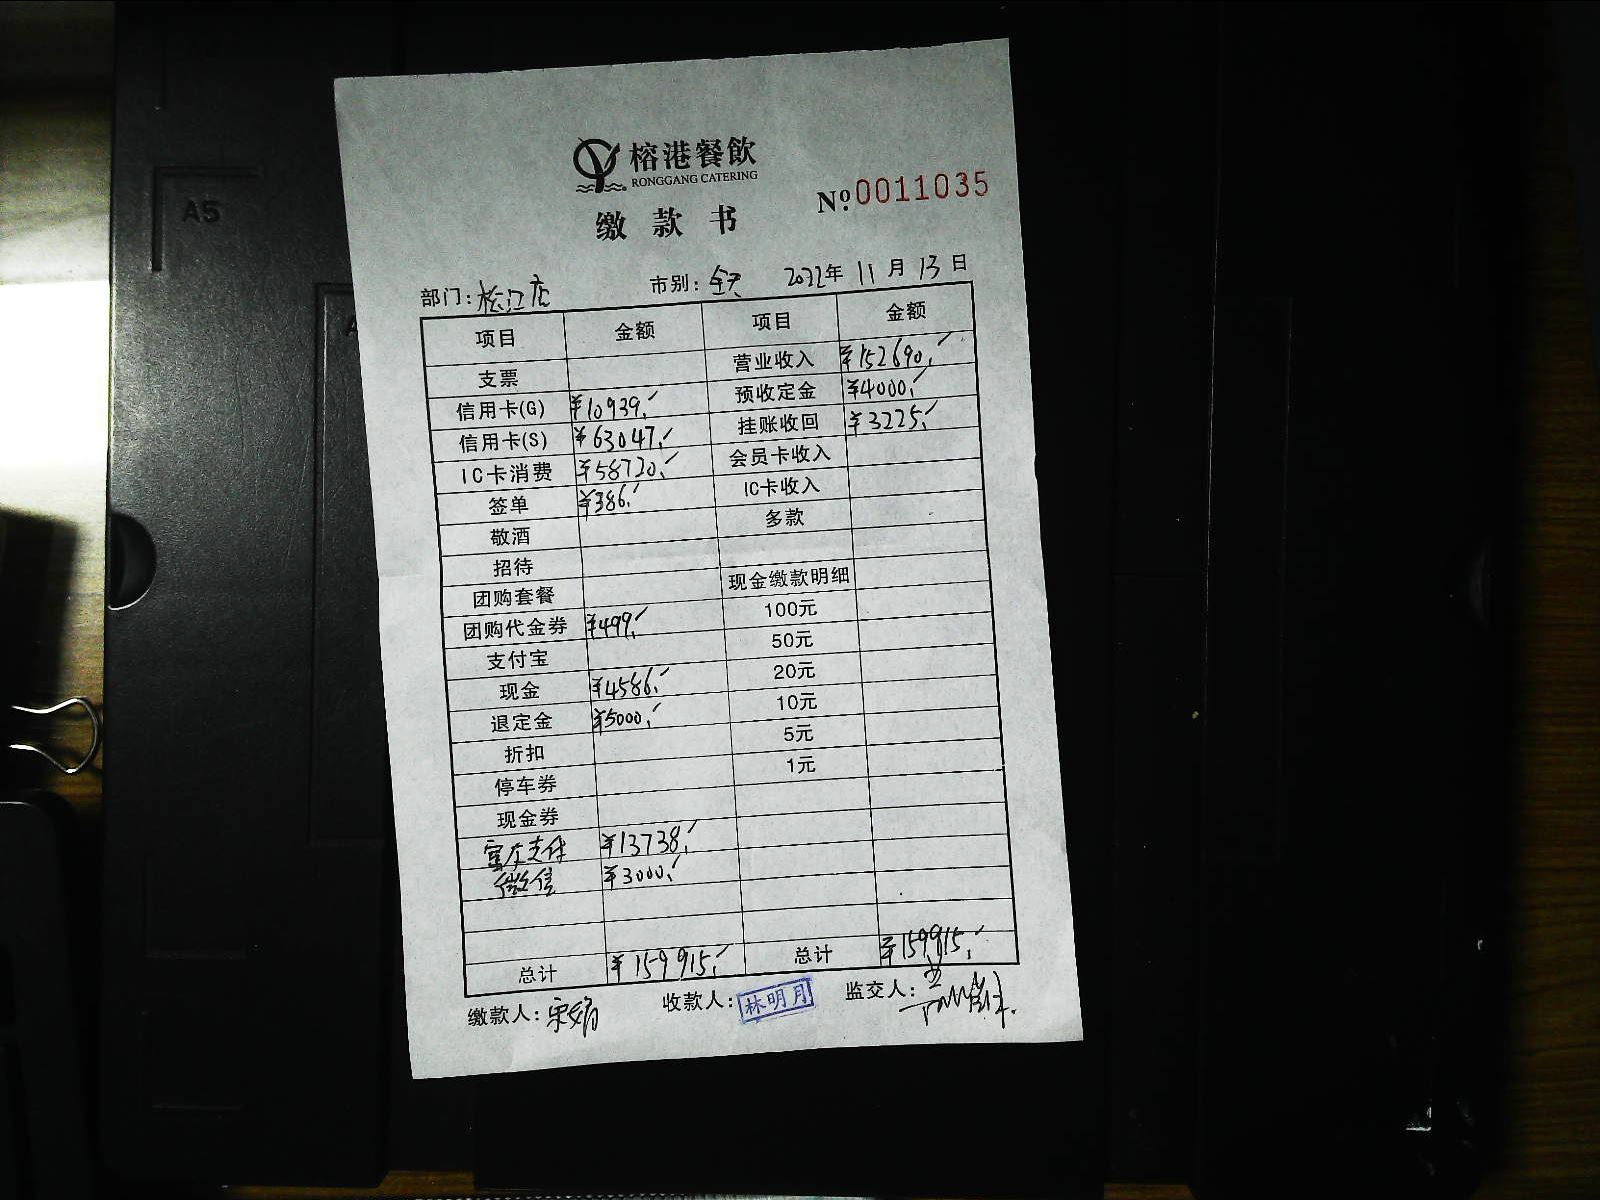 A5
榕港餐飲
RONGGANG CATERING
缴款书
№:0011035
部门:松江店 市别:全天 2022年11月13日
项目 金额 项目 金额
支票 营业收入 ¥152690.-
信用卡(G) ¥10939.- 预收定金 ¥4000.-
信用卡(S) ¥63047.- 挂账收回 ¥3225.-
IC卡消费 ¥58720.- 会员卡收入
签单 ¥386.- IC卡收入
敬酒 多款
招待
团购套餐 现金缴款明细
团购代金券 ¥499.- 100元
支付宝 50元
现金 ¥4586.- 20元
退定金 ¥5000.- 10元
折扣 5元
停车券 1元
现金券
支付 ¥13738.-
微信 ¥3000.-
总计 ¥159915.- 总计 ¥159915.-
缴款人: 收款人:林明月 监交人: